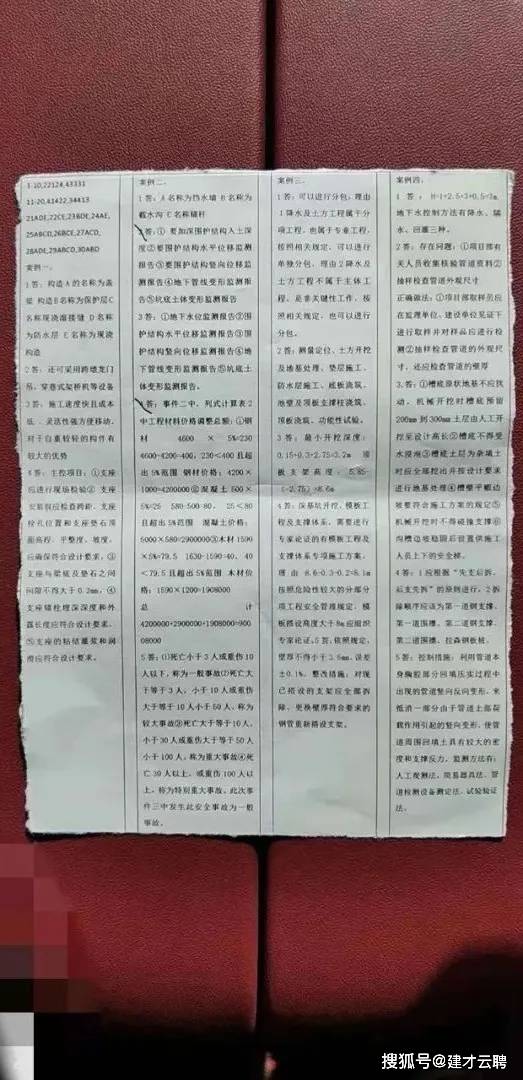 1-10,22124,43331
11-20,41422,34413
21ADE,22CE,23BDE,24AE,
25ABCD,26BCE,27ACD,
28ADE,29ABCD,30ABD
案例一:
1答: 构造A的名称为盖
梁 构造B名称为保护层C
名称现浇湿接缝 D名称
为防水层 E名称为现浇
构造
2答: 还可采用跨墩龙门
吊, 穿巷式架桥机等设备
3答: 施工速度快且成本
低, 灵活性强方便移动,
对于自重较轻的构件有
较大的优势
4答: 主控项目: ①支座
应进行现场检验② 支座
安装前应检查跨距、支座
栓孔位置和支座垫石顶
面高程、平整度、坡度,
应确保符合设计要求。③
支座与梁底及垫石之间
间隙不得大于0.2mm。④
支座锚栓埋深深度和外
露长度应符合设计要求。
⑤支座的粘结灌浆和润
滑应符合设计要求。
案例二:
1答: A名称为挡水墙 B名称为
截水沟 C名称锚杆
2答: ① 要加深围护结构入土深
度②要围护结构水平位移监测
报告③要围护结构竖向位移监
测报告④地下管线变形监测报
告⑤坑底土体变形监测报告
3答: ①地下水位监测报告②围
护结构水平位移监测报告③围
护结构竖向位移监测报告④地
下管线变形监测报告⑤坑底土
体变形监测报告。
4答: 事件二中, 列式计算表2
中工程材料价格调整总额: ①钢
材 4600 × 5%=230
4600-4200=400, 230<400 且超
出5%范围 钢材价格: 4200×
1000=4200000②混凝土 500×
5%=25 580-500=80, 25<80
且超出5%范围 混凝土价格:
5000×580=2900000③木材1590
×5%=79.5 1630-1590=40, 40
<79.5且超出5%范围 木材价
格: 1590×1200=1908000
总计
4200000+2900000+1908000=900
08000
5答: (1)死亡小于3人或重伤10
人以下, 称为一般事故⑵死亡大
于等于3人, 小于10人或重伤
大于等于10人小于50人, 称为
较大事故③死亡大于等于10人,
小于30人或重伤大于等于50人
小于100人, 称为重大事故④死
亡30人以上, 或重伤100人以
上, 称为特别重大事故。此次事
件三中发生此安全事故为一般
事故。
案例三:
1答: 可以进行分包, 理由
1降水及土方工程属于分
项工程, 也属于专业工程,
按照相关规定, 可以进行
单独分包。理由2降水及
土方工程不属于主体工
程, 是非关键性工作, 按
照相关规定, 也可以进行
分包。
2答: 测量定位、土方开挖
及地基处理、垫层施工、
防水层施工、底板浇筑、
池壁及顶板支撑柱浇筑、
顶板浇筑、功能性试验。
3答: 最小开挖深度:
0.15+0.3+2.75=3.2m 顶
板支架高度: 5.85-
(-2.75) =8.6m
4答: 深基坑开挖、模板工
程及支撑体系, 需要进行
专家论证的有模板工程及
支撑体系专项施工方案。
理由 8.6-0.3-0.2=8.1m
按照危险性较大的分部分
项工程安全管理规定, 模
板搭设高度大于8m应组织
专家论证。5答: 依照规定,
壁厚不得小于3.5mm, 误差
±0.1%, 整改措施: 对现
已搭设的支架应全部拆
除, 更换壁厚符合要求的
钢管重新搭设支架。
案例四:
1答: H=1+2.5-3+0.5=3m,
地下水控制方法有降水、隔
水、回灌三种。
2答: 存在问题: ①项目部有
关人员收集核验管道资料②
抽样检查管道外观尺寸
正确做法: ①项目部取样员应
在监理单位、建设单位见证下
进行取样并对样品应进行检
测②抽样检查管道的外观尺
寸, 还应检查管道的壁厚
3答: ①槽底原状地基不应扰
动, 机械开挖时槽底预留
200mm到300mm土层由人工开
挖至设计高长②槽底不得受
水浸泡③槽底土层为杂填土
时应全部挖出并按设计要求
进行地基处理④槽壁平顺边
坡要符合施工方案的规定⑤
机械开挖时不得碰撞支撑⑥
沟槽边坡稳固后设置供施工
人员上下的安全梯。
4答: 1应根据"先支后拆、
后支先拆"的原则进行。2拆
除顺序应该为第一道钢支撑、
第一道围檩、第二道钢支撑、
第二道围檩、拉森钢板桩。
5答: 控制措施: 利用管道本
身胸腔部分回填压实过程中
出现的管道竖向反向变形, 来
抵消一部分由于管道上部荷
载作用引起的竖向变形, 使管
道周围回填土具有较大的密
度和支撑反力。监测方法有:
人工观测法、简易器具法、管
道检测设备测定法、试验验证
法。
搜狐号@建才云聘